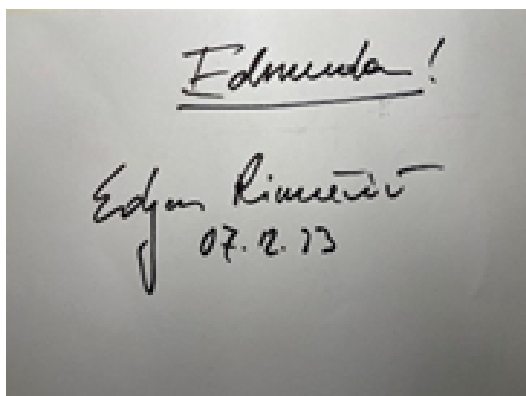 Edmunda!
Edgars Rinkēvičs
07.12.23